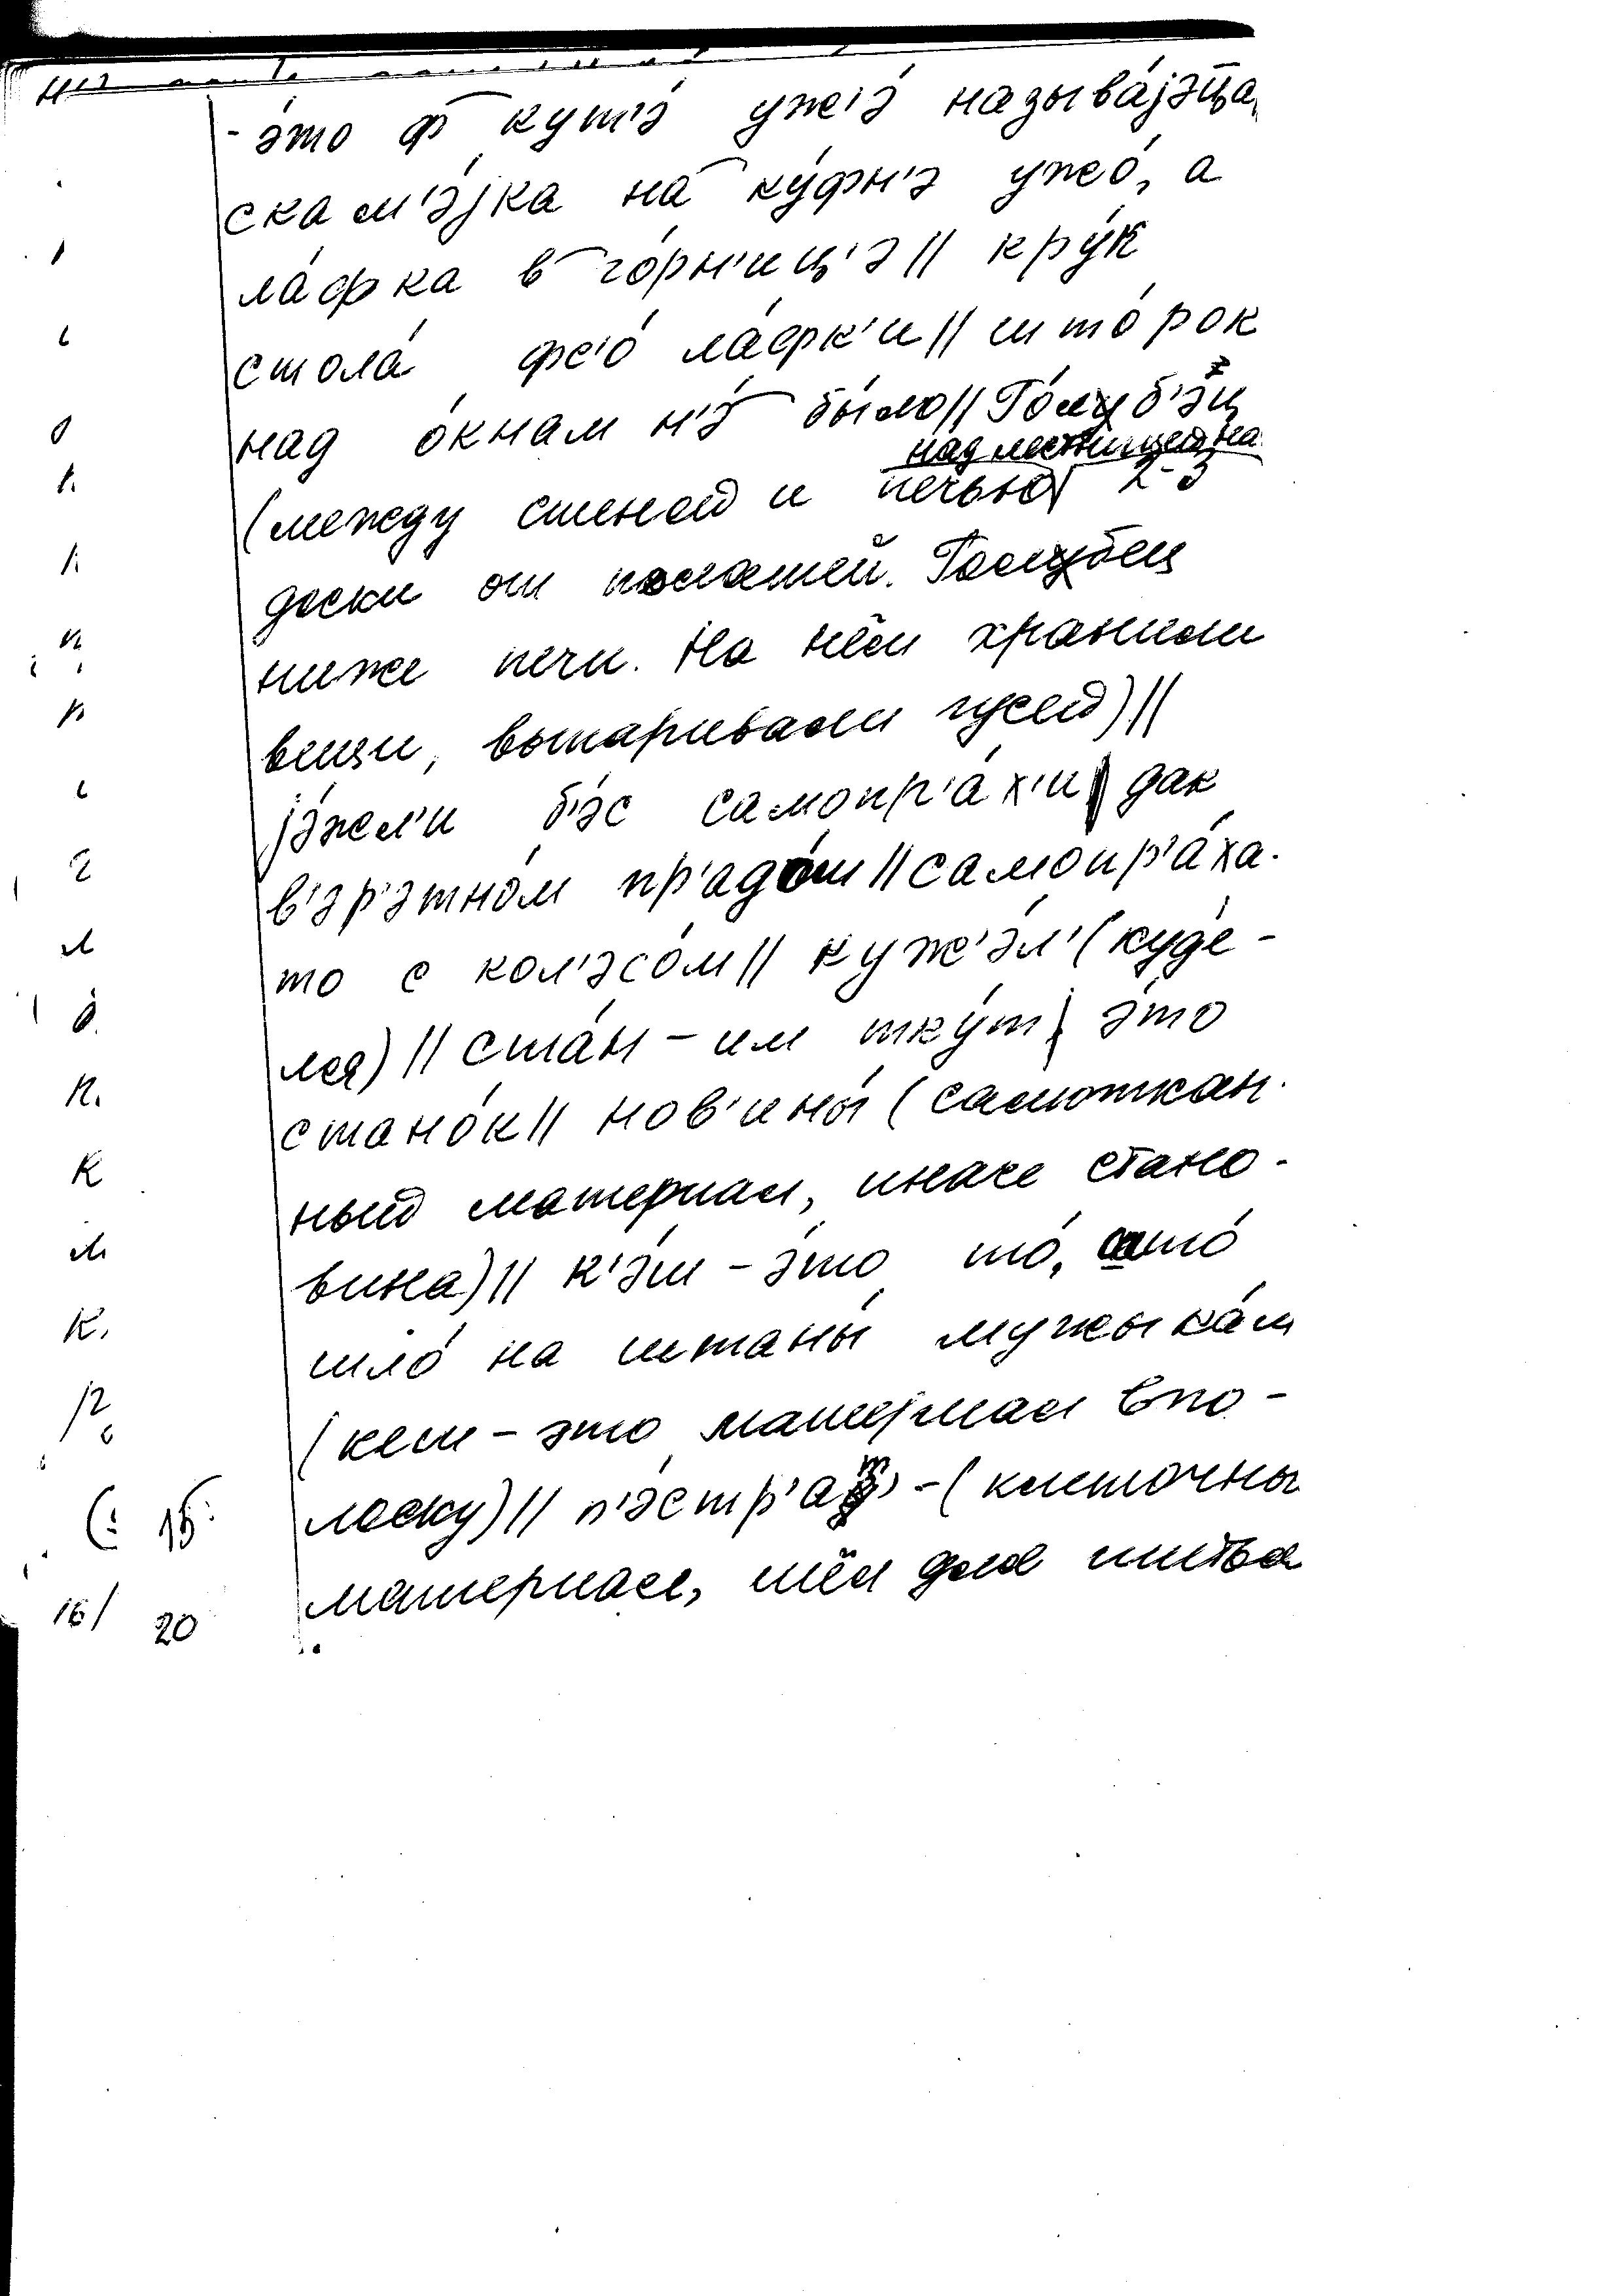 - э́то ф кут'э́ уж'э́ называ́јэц̄а,
скам'э́јка на ку́фн'э ужо́, а
ла́фка в го́рн'иц'э // кру́к
стола́ фс'о́ ла́фк'и // што́рок
над о́кнам н'э́ бы́ло // Го́луб'эц
над лестницей на
(между стеной и печью 2-3
доски от полатей. Голубец
ниже печи. На нём хранили
вещи, выпаривали гусей) //
јэ́жел'и б'эс самопр'а́х'и дак
в'эр'этно́м пр'адо́ш // самопр'а́ха-
то с кол'эсо́м // куж'э́л' (куде́-
ля) // ста́н - им тку́т э́то
стано́к // нов'ины́ (самоткан-
ный материал, иначе стано-
вина) // к'э́ш - э́то то́, што́
шло́ на штаны́ мужыка́м
(кеш - это материал впо-
лоску) // п'э́стр'ат' - (клеточны
материал, шёл для шитья
15
16/ 20